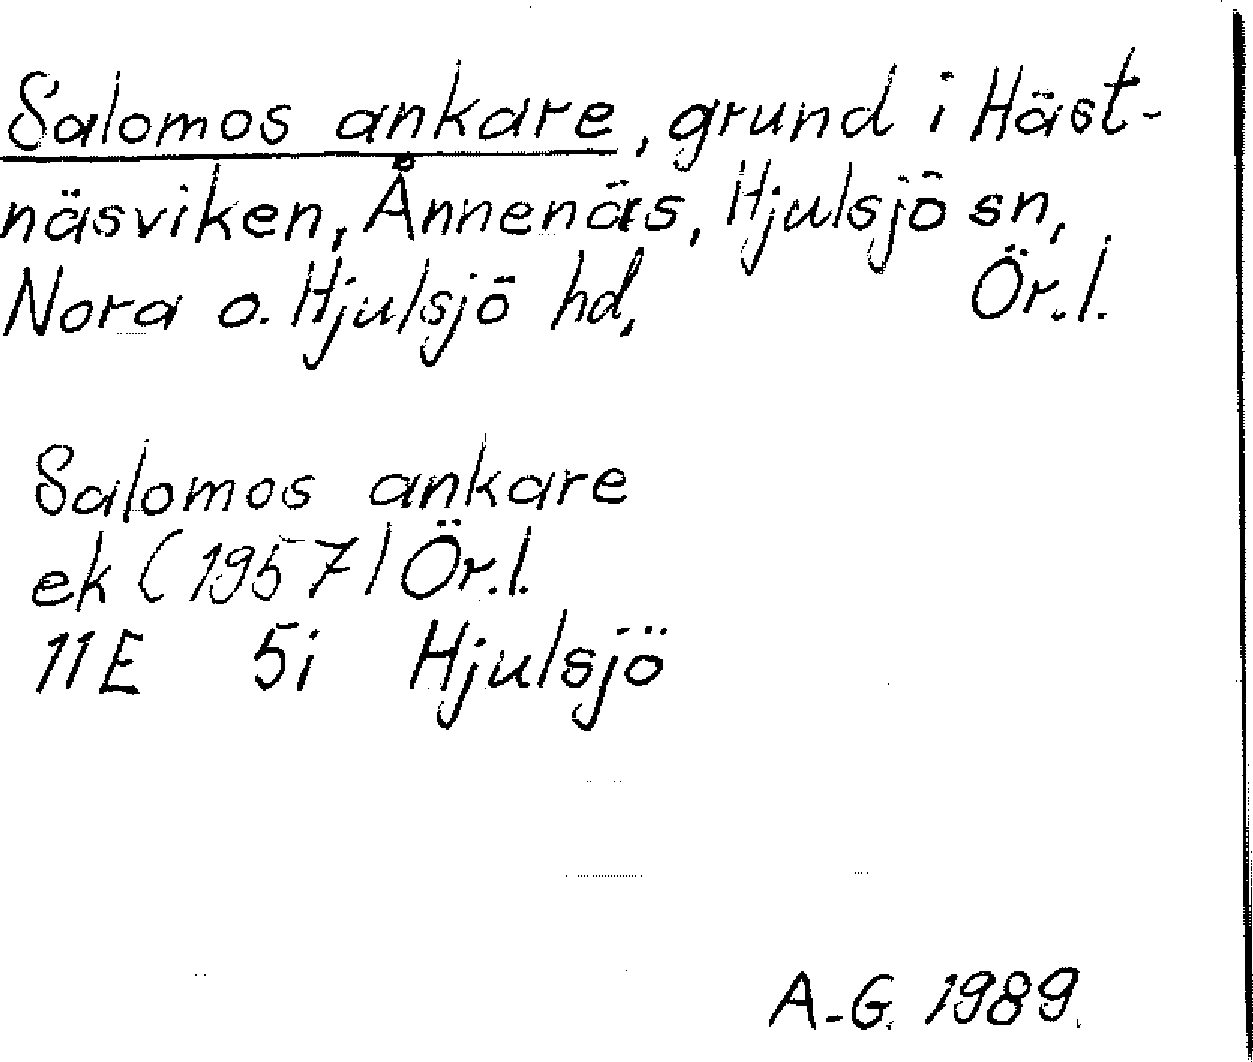 Salomos ankare, grund i Häst-
näsviken, Ånnenäs, Hjulsjö sn,
Nora o. Hjulsjö hd, Ör.l.
Salomos ankare
ek (1957) Ör.l.
11E 5i Hjulsjö
A-G. 1989.